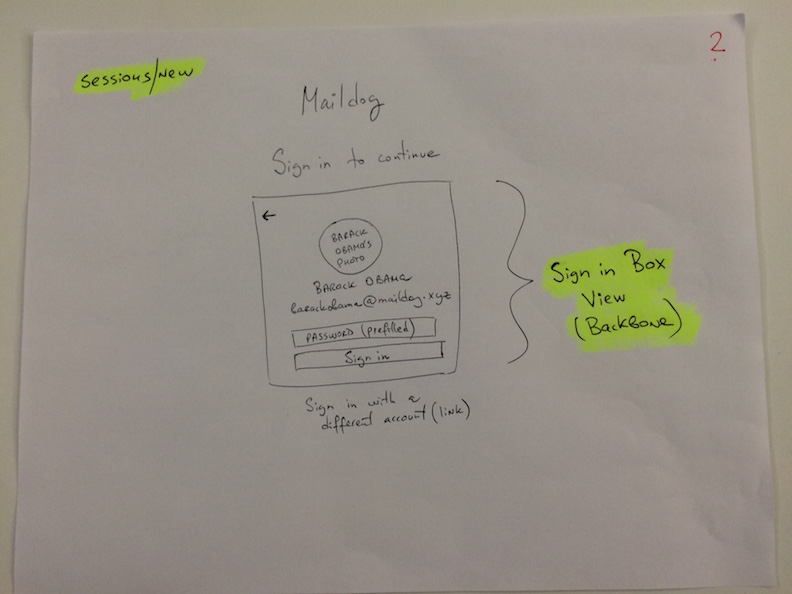 Sessions/New
2
Maildog
Sign in to continue
←
BARACK
OBAMA'S
PHOTO
BARACK OBAMA
barackobama@maildog.xyz
PASSWORD (prefilled)
Sign in
Sign in with a
different account (link)
Sign in Box
View
(Backbone)